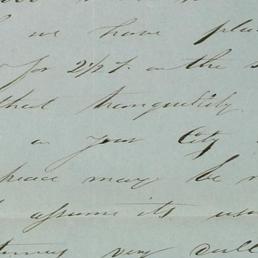 we have pla
for 2 1/2 %. on the s
that tranquility
in your City
peace may be r
assume its usu
very